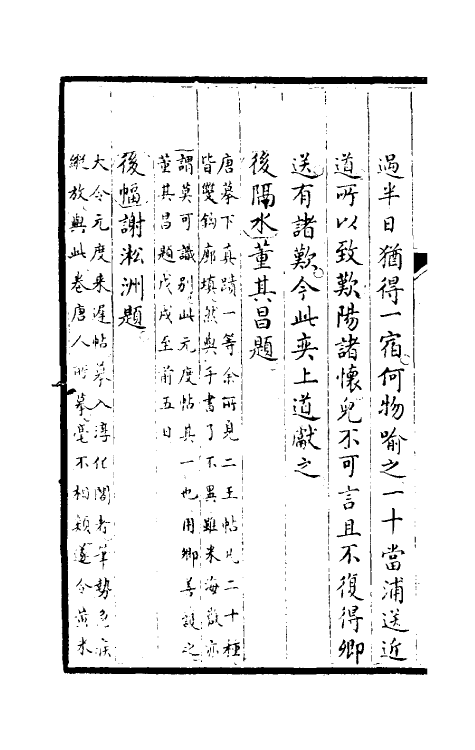 過半日猶得一宿何物喻之一十當浦送近
道所以致歎陽諸懷兒不可言且不復得卿
送有諸歎今此奕上道獻之
後隔水董其昌題
唐摹下真蹟一等余所見二王帖凡二十種
皆雙鈎廓填然與手書了不異雖米海嶽亦
謂莫可識別此元度帖其一也用卿善證之
董其昌題戊戌至前五日
後幅謝淞洲題
大令元度來遲帖摹入淳化閣者筆勢
縱放與此卷唐人所摹毫不相類遂令黃米